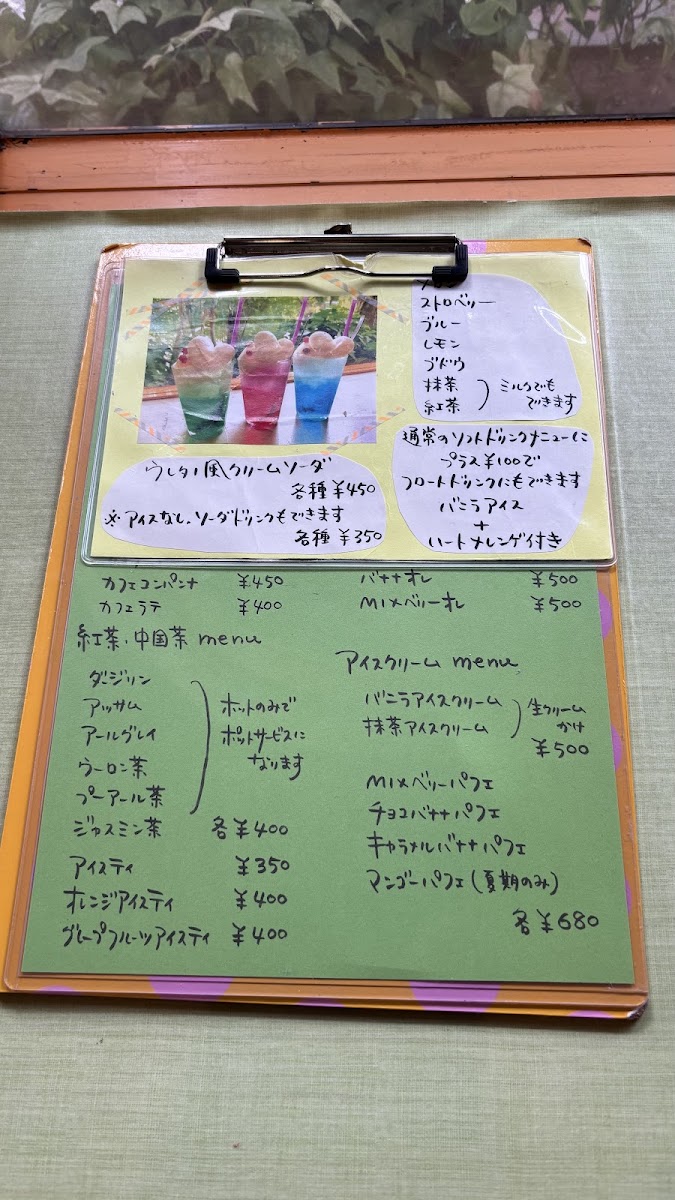 ストロベリー
ブルー
レモン
ブドウ
抹茶
紅茶
ミルクでも
できます
ウレタノ風クリームソーダ
各種 ¥450
※アイスなし、ソーダドリンクもできます
各種 ¥350
通常のソフトドリンクメニューに
プラス¥100で
フロートドリンクにもできます
バニラアイス
+
ハートメレンゲ付き
カフェコンパンナ ¥450
カフェラテ ¥400
バナナオレ ¥500
MIXベリーオレ ¥500
紅茶、中国茶 menu
ダージリン
アッサム
アールグレイ
ウーロン茶
プーアール茶
ジャスミン茶 各¥400
ホットのみで
ポットサービスに
なります
アイスティ ¥350
オレンジアイスティ ¥400
グレープフルーツアイスティ ¥400
アイスクリーム menu
バニラアイスクリーム
抹茶アイスクリーム
生クリーム
かけ
¥500
MIXベリーパフェ
チョコバナナパフェ
キャラメルバナナパフェ
マンゴーパフェ(夏期のみ)
各¥680